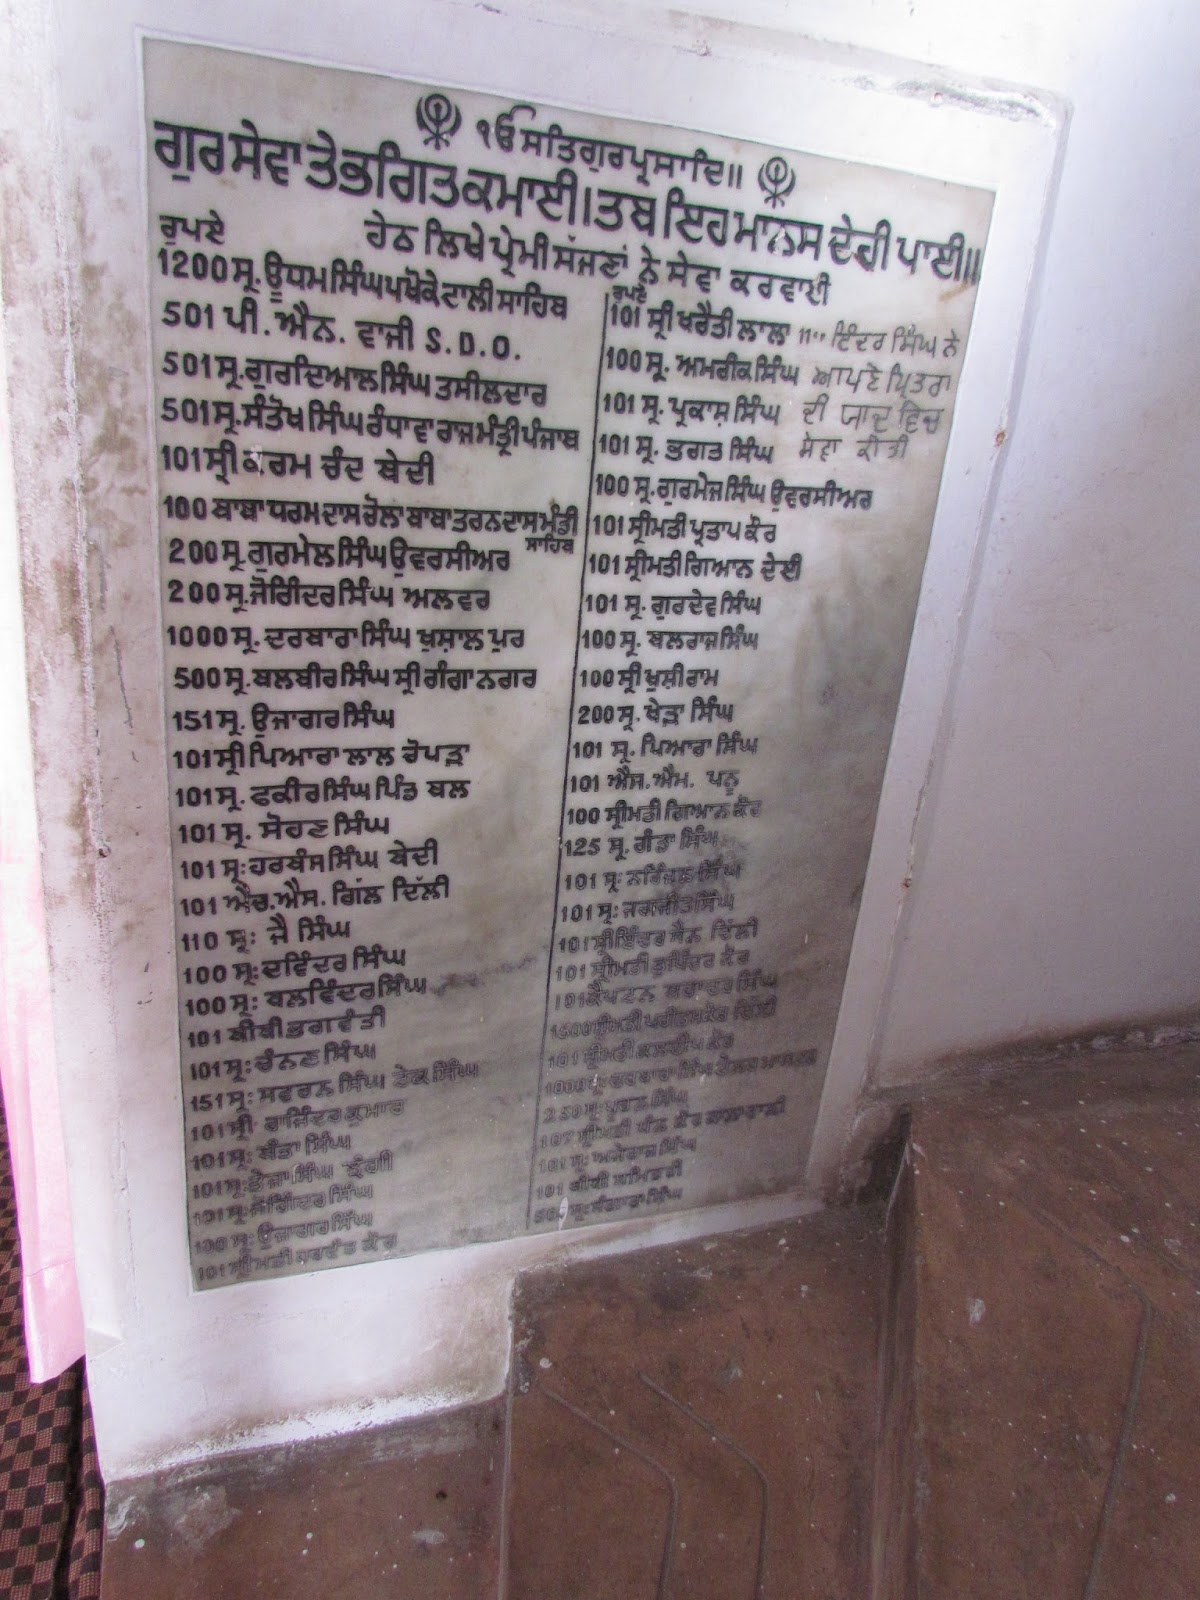 ੴ ਸਤਿਗੁਰ ਪ੍ਰਸਾਦਿ॥
ਗੁਰ ਸੇਵਾ ਤੇ ਭਗਿਤ ਕਮਾਈ। ਤਬ ਇਹ ਮਾਨਸ ਦੇਹੀ ਪਾਈ॥
ਹੇਠ ਲਿਖੇ ਪ੍ਰੇਮੀ ਸੱਜਣਾਂ ਨੇ ਸੇਵਾ ਕਰਵਾਈ
ਰੁਪਏ
1200 ਸ੍ਰ. ਊਧਮ ਸਿੰਘ ਪਖੋਕੇ ਟਾਲੀ ਸਾਹਿਬ
501 ਪੀ. ਐਨ. ਵਾਜੀ S.D.O.
501 ਸ੍ਰ. ਗੁਰਦਿਆਲ ਸਿੰਘ ਤਸੀਲਦਾਰ
501 ਸ੍ਰ. ਸੰਤੋਖ ਸਿੰਘ ਰੰਧਾਵਾ ਰਾਜ ਮੰਤ੍ਰੀ ਪੰਜਾਬ
101 ਸ੍ਰੀ ਕਰਮ ਚੰਦ ਬੇਦੀ
100 ਬਾਬਾ ਧਰਮਦਾਸ ਚੋਲਾ ਬਾਬਾ ਤਰਨਦਾਸ ਮੰਡੀ
ਸਾਹਿਬ
200 ਸ੍ਰ. ਗੁਰਮੇਲ ਸਿੰਘ ਉਵਰਸੀਅਰ
200 ਸ੍ਰ. ਜੋਗਿੰਦਰ ਸਿੰਘ ਅਲਵਰ
1000 ਸ੍ਰ. ਦਰਬਾਰਾ ਸਿੰਘ ਖੁਸ਼ਾਲ ਪੁਰ
500 ਸ੍ਰ. ਬਲਬੀਰ ਸਿੰਘ ਸ੍ਰੀ ਗੰਗਾ ਨਗਰ
151 ਸ੍ਰ. ਉਜਾਗਰ ਸਿੰਘ
101 ਸ੍ਰੀ ਪਿਆਰਾ ਲਾਲ ਚੋਪੜਾ
101 ਸ੍ਰ. ਫਕੀਰ ਸਿੰਘ ਪਿੰਡ ਬਲ
101 ਸ੍ਰ. ਸੋਹਣ ਸਿੰਘ
101 ਸ੍ਰ: ਹਰਬੰਸ ਸਿੰਘ ਬੇਦੀ
101 ਐਚ. ਐਸ. ਗਿੱਲ ਦਿੱਲੀ
110 ਸ੍ਰ: ਜੈ ਸਿੰਘ
100 ਸ੍ਰ: ਦਵਿੰਦਰ ਸਿੰਘ
100 ਸ੍ਰ: ਬਲਵਿੰਦਰ ਸਿੰਘ
101 ਬੀਬੀ ਭਗਵੰਤੀ
101 ਸ੍ਰ: ਚੰਨਣ ਸਿੰਘ
151 ਸ੍ਰ: ਸਵਰਨ ਸਿੰਘ ਟੇਕ ਸਿੰਘ
101 ਸ੍ਰੀ ਰਾਜਿੰਦਰ ਕੁਮਾਰ
101 ਸ੍ਰ: ਬੰਤਾ ਸਿੰਘ
101 ਸ੍ਰ: ਤੇਜਾ ਸਿੰਘ
101 ਸ੍ਰ: ਜੋਗਿੰਦਰ ਸਿੰਘ
100 ਸ੍ਰ: ਉਜਾਗਰ ਸਿੰਘ
101 ਸ੍ਰੀਮਤੀ ਕੌਰ
ਰੁਪਏ
101 ਸ੍ਰੀ ਖਰੈਤੀ ਲਾਲਾ
100 ਸ੍ਰ. ਅਮਰੀਕ ਸਿੰਘ
101 ਸ੍ਰ. ਪ੍ਰਕਾਸ਼ ਸਿੰਘ
101 ਸ੍ਰ. ਭਗਤ ਸਿੰਘ
100 ਸ੍ਰ. ਗੁਰਮੇਜ ਸਿੰਘ ਉਵਰਸੀਅਰ
101 ਸ੍ਰੀਮਤੀ ਪ੍ਰਤਾਪ ਕੌਰ
101 ਸ੍ਰੀਮਤੀ ਗਿਆਨ ਦੇਈ
101 ਸ੍ਰ. ਗੁਰਦੇਵ ਸਿੰਘ
100 ਸ੍ਰ. ਬਲਰਾਜ ਸਿੰਘ
100 ਸ੍ਰੀ ਖੁਸ਼ੀ ਰਾਮ
200 ਸ੍ਰ. ਖੇੜਾ ਸਿੰਘ
101 ਸ੍ਰ. ਪਿਆਰਾ ਸਿੰਘ
101 ਐਸ. ਐਮ. ਪਨੂ
100 ਸ੍ਰੀਮਤੀ ਗਿਆਨ ਕੌਰ
125 ਸ੍ਰ. ਗੰਡਾ ਸਿੰਘ
101 ਸ੍ਰ: ਨਰਿੰਜਨ ਸਿੰਘ
101 ਸ੍ਰ: ਜਗਜੀਤ ਸਿੰਘ
101 ਸ੍ਰੀ ਇੰਦਰ ਸੈਨ ਦਿੱਲੀ
101 ਸ੍ਰੀਮਤੀ ਭੁਪਿੰਦਰ ਕੌਰ
101 ਕੈਪਟਨ ਸਿੰਘ
ਸ੍ਰੀਮਤੀ ਪਰੀਤਮ ਕੌਰ ਦਿੱਲੀ
101 ਸ੍ਰੀਮਤੀ ਕੁਲਦੀਪ ਕੌਰ
1000 ਸ੍ਰ: ਦਰਬਾਰਾ ਸਿੰਘ
250 ਸ੍ਰ: ਪੂਰਨ ਸਿੰਘ
107 ਸ੍ਰੀਮਤੀ ਕੌਰ
101 ਸ੍ਰ: ਸਿੰਘ
101 ਬੀਬੀ
ਸ੍ਰ: ਸਿੰਘ
ਇੰਦਰ ਸਿੰਘ ਨੇ
ਆਪਣੇ ਪ੍ਰਿਤਰਾ
ਦੀ ਯਾਦ ਵਿਚ
ਸੇਵਾ ਕੀਤੀ